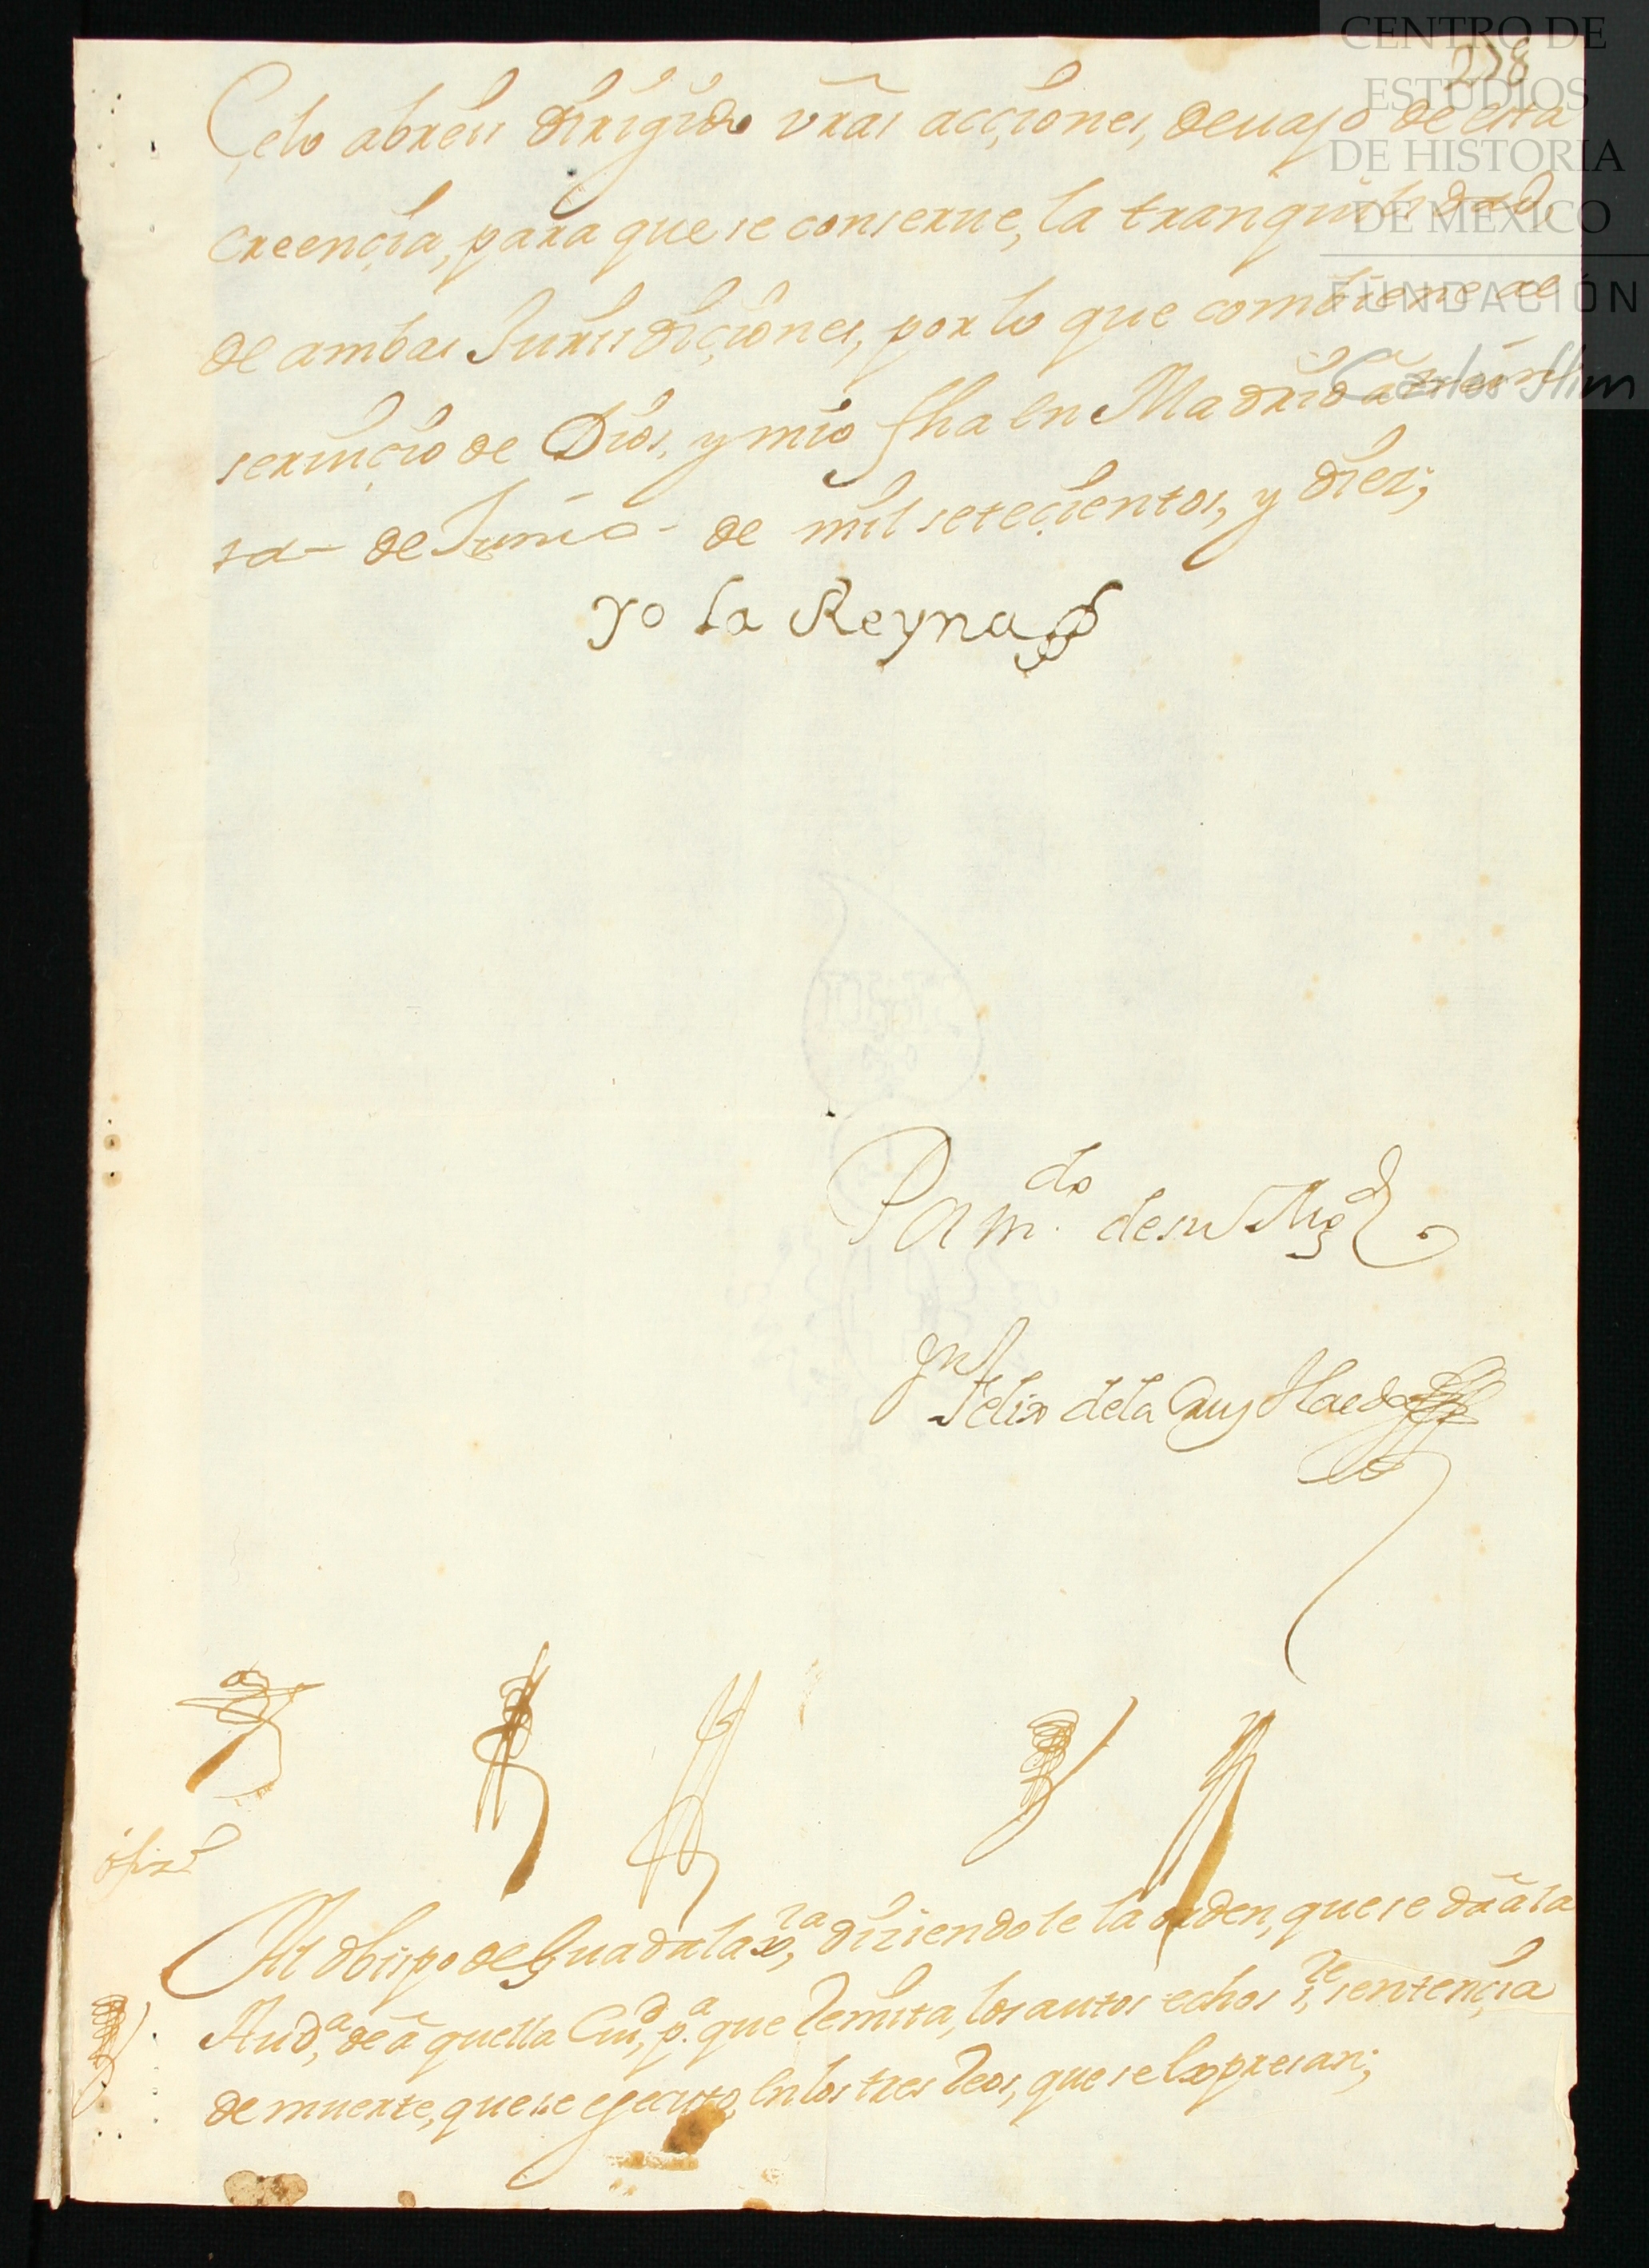 CENTRO DE
ESTUDIOS
DE HISTORIA
DE MEXICO
FUNDACIÓN
Carlos Slim
218
Çelo abreis dirigido vrãs acçiones, deuajo de esta
creençia, para que se conserue, la tranquilidad
de ambas Jurisdiçiones, por lo que combiene al
seruiçio de Dios, y mio fha en Madrid a trein
ta de Junio de mil seteçientos, y diez;
Yo la Reyna
Por m.do de su Mgd
Felix de la Cruz Haedo
Al Obispo de Guadalax.ra, diziendole la orden, que se dã a la
Aud.a, de aquella Ciu.d, p.a que Remita, los autos echos s.re sentençia
de muerte, que se ejecuto, en los tres Reos, que se expresan;